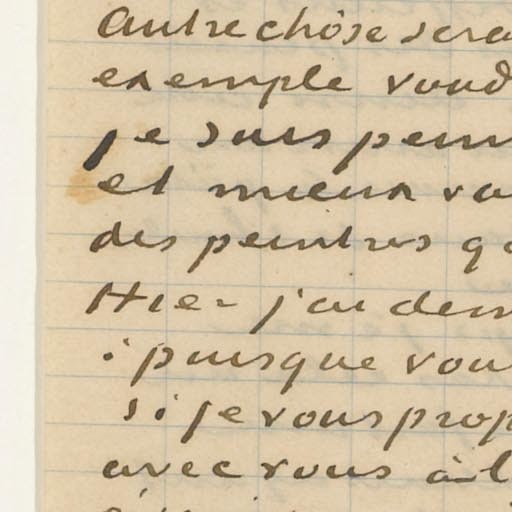 Autre chose sera
exemple voud
je suis pein
et mieux va
des peintres q
Hier j'ai dem
i puisque vou
si je vous prop
avec vous à l